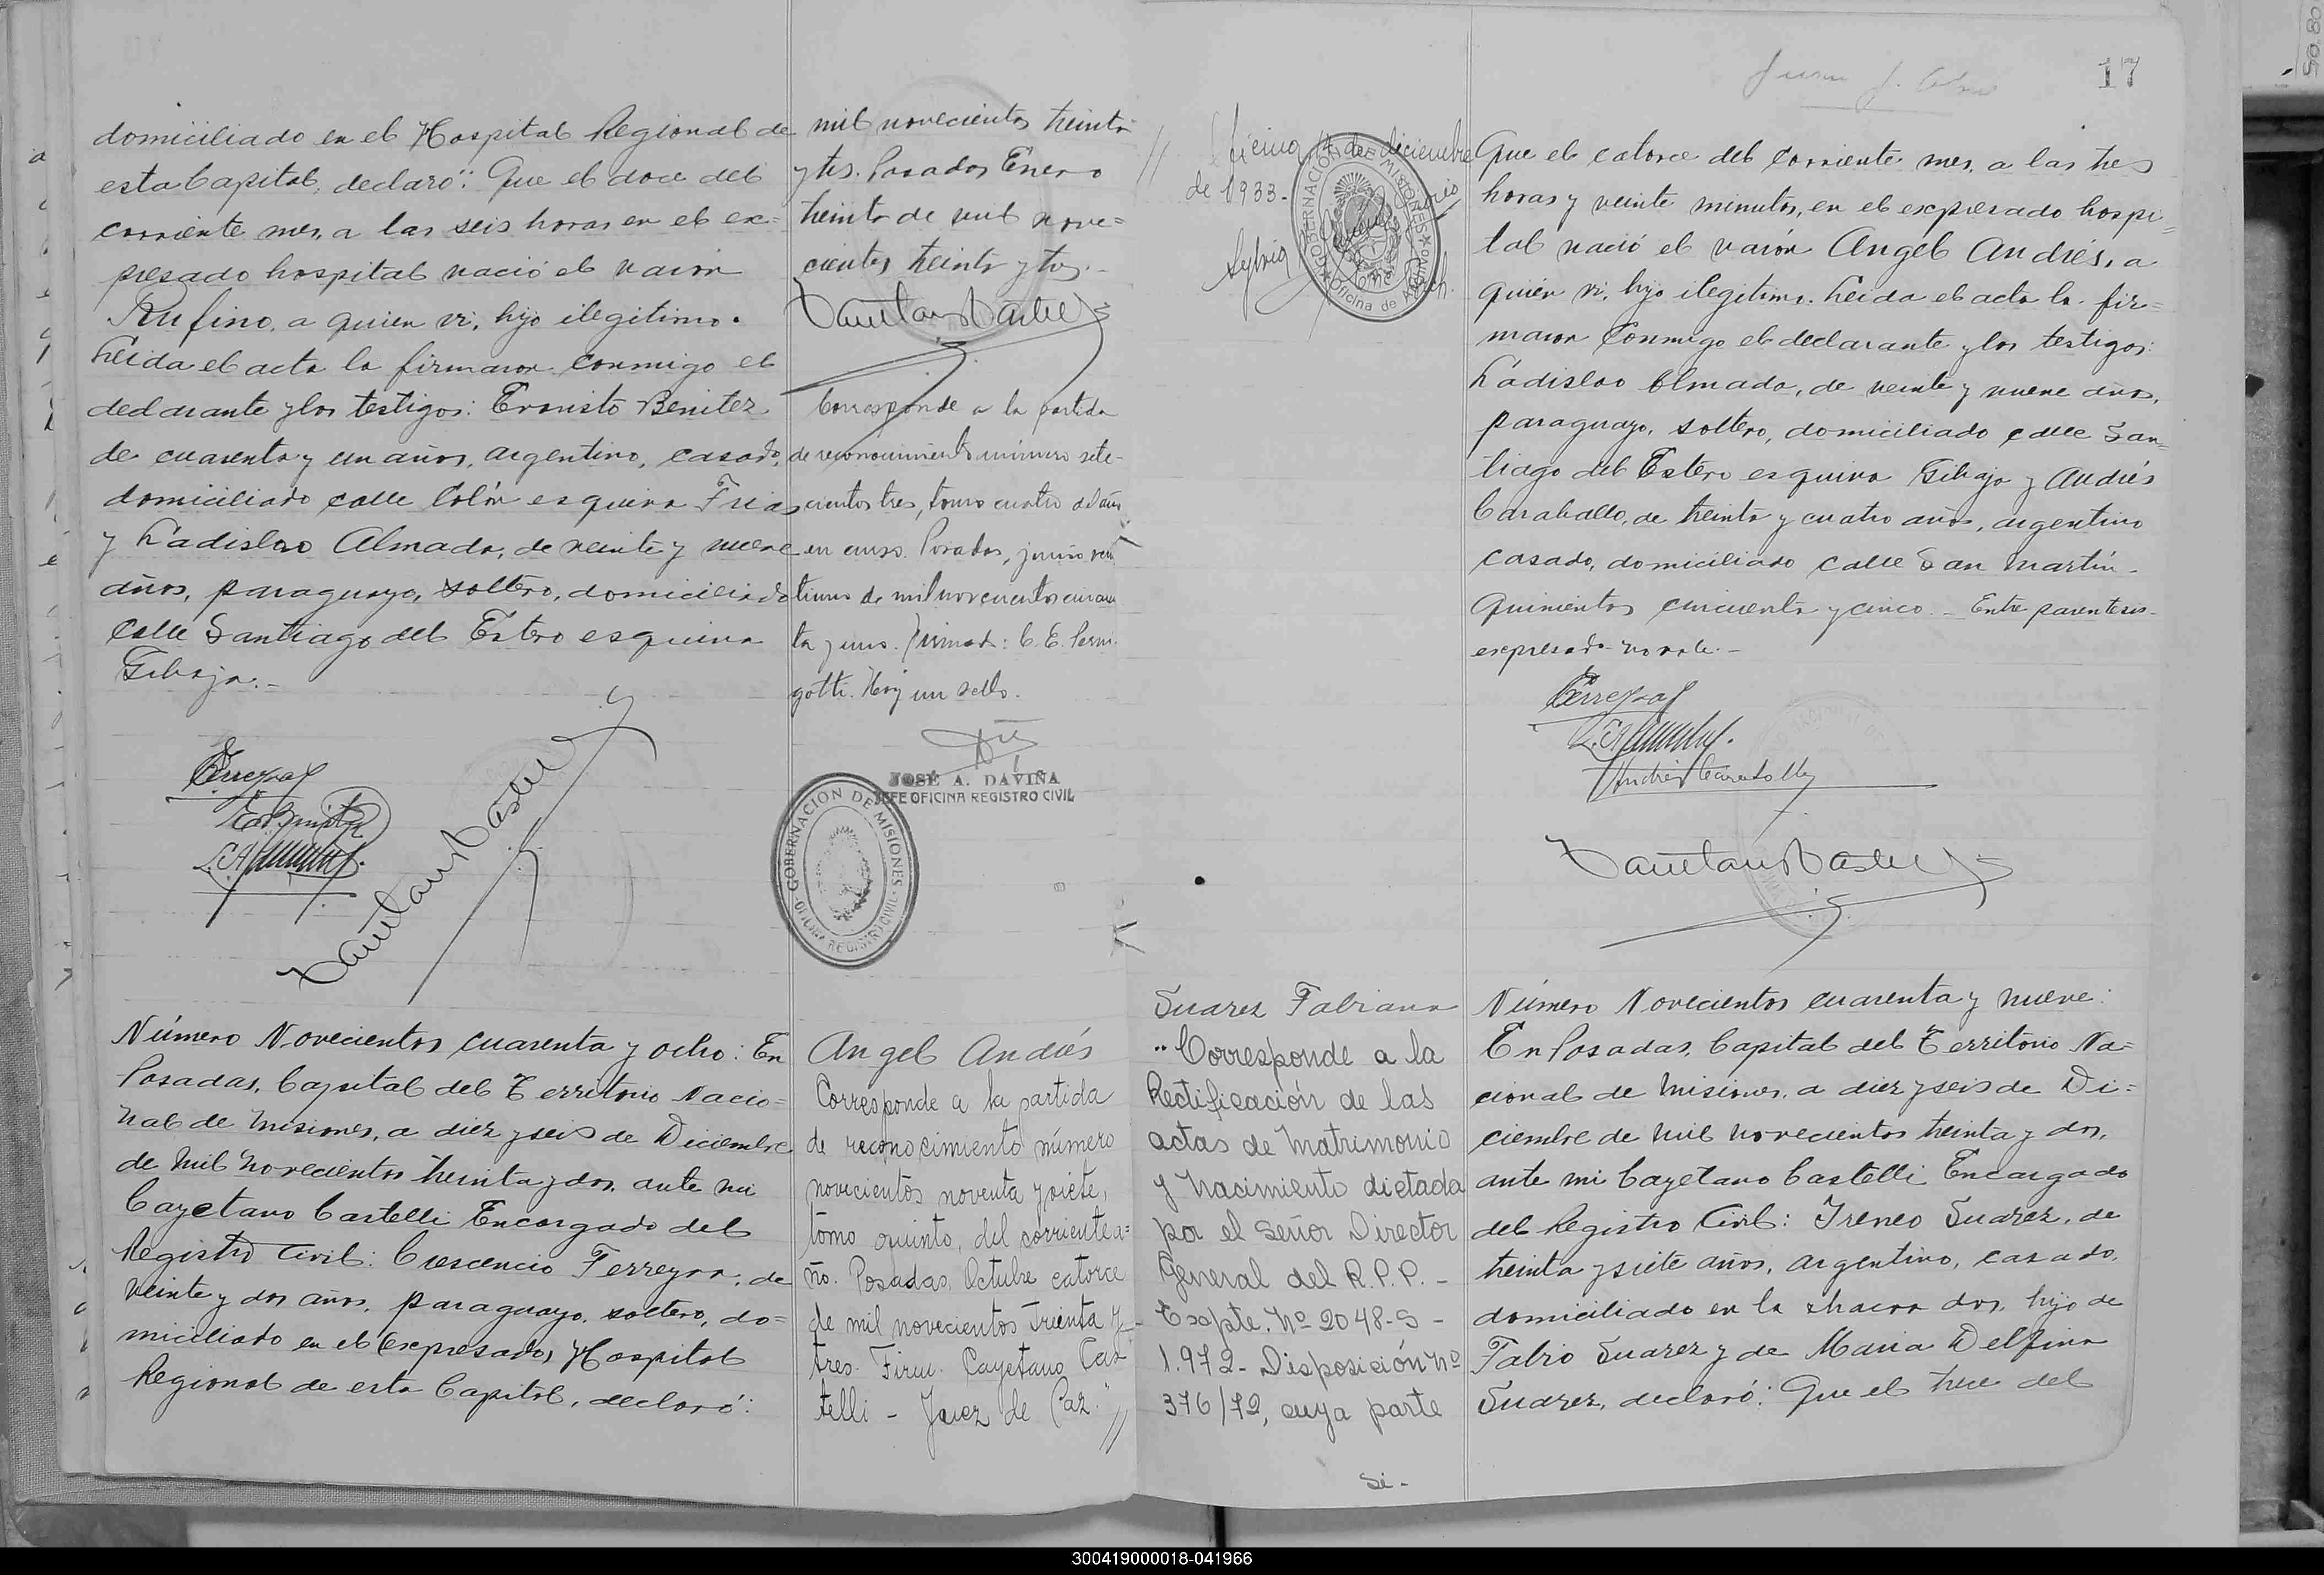 domiciliado en el Hospital Regional de
esta Capital, declaró: Que el doce del
corriente mes, a las seis horas en el ex=
presado hospital nació el varón
Rufino, a quien vi, hijo ilegitimo.
Leida el acta la firmaron conmigo el
declarante y los testigos: Evaristo Benitez
de cuarenta y un años, argentino, casado,
domiciliado calle Colón esquina Frias
y Ladislao Almada, de veinte y nueve
años, paraguayo, soltero, domiciliado
calle Santiago del Estero esquina
Gibaja.=
mil novecientos treinta
y tres. Posadas Enero
treinta de mil nove=
cientos treinta y tres.-
Corresponde a la partida
de reconocimiento número sete-
cientos tres, tomo cuatro del año
en curso. Posadas, junio vein
tiuno de mil novecientos cuaren
ta y uno. Firmado: C. E. Permi-
gotti. Hay un sello.
JOSÉ A. DAVIÑA
JEFE OFICINA REGISTRO CIVIL
GOBERNACION DE MISIONES
OFICINA REGISTRO CIVIL
Número Novecientos cuarenta y ocho: En
Posadas, Capital del Territorio Nacio=
nal de Misiones, a diez y seis de Diciembre
de mil novecientos treinta y dos, ante mi
Cayetano Castelli Encargado del
Registro Civil: Crescencio Ferreyra, de
veinte y dos años, paraguayo, soltero, do=
miciliado en el (expresado) Hospital
Regional de esta Capital, declaró:
Angel Andrés
Corresponde a la partida
de reconocimiento número
novecientos noventa y siete,
tomo quinto, del corriente a=
ño. Posadas, Octubre catorce
de mil novecientos treinta y
tres. Firm. Cayetano Cas-
telli - Juez de Paz." //
17
// Oficina, 14 de diciembre
de 1933.-
GOBERNACION DE MISIONES
Que el catorce del corriente mes, a las tres
horas y veinte minutos, en el expresado hospi=
tal nació el varón Angel Andrés, a
quien vi, hijo ilegitimo. Leida el acta la fir=
maron conmigo el declarante y los testigos:
Ladislao Almada, de veinte y nueve años,
paraguayo, soltero, domiciliado calle San=
tiago del Estero esquina Gibaja y Andrés
Caraballo, de treinta y cuatro años, argentino
casado, domiciliado calle San Martín
quinientos cincuenta y cinco.- Entre parentesis-
expresado- no vale.-
Andrés Caraballo
Suarez Fabiana
"Corresponde a la
Rectificación de las
actas de Matrimonio
y Nacimiento dictada
por el Señor Director
General del R.P.P. -
Expte. Nº 2048-S -
1.972- Disposición Nº
376/72, cuya parte
Si -
Número Novecientos cuarenta y nueve:
En Posadas, Capital del Territorio Na=
cional de Misiones, a diez y seis de Di=
ciembre de mil novecientos treinta y dos,
ante mi Cayetano Castelli Encargado
del Registro Civil: Ireneo Suarez, de
treinta y siete años, argentino, casado,
domiciliado en la chacra dos, hijo de
Fabio Suarez y de Maria Delfina
Suarez, declaró: Que el trece del
300419000018-041966